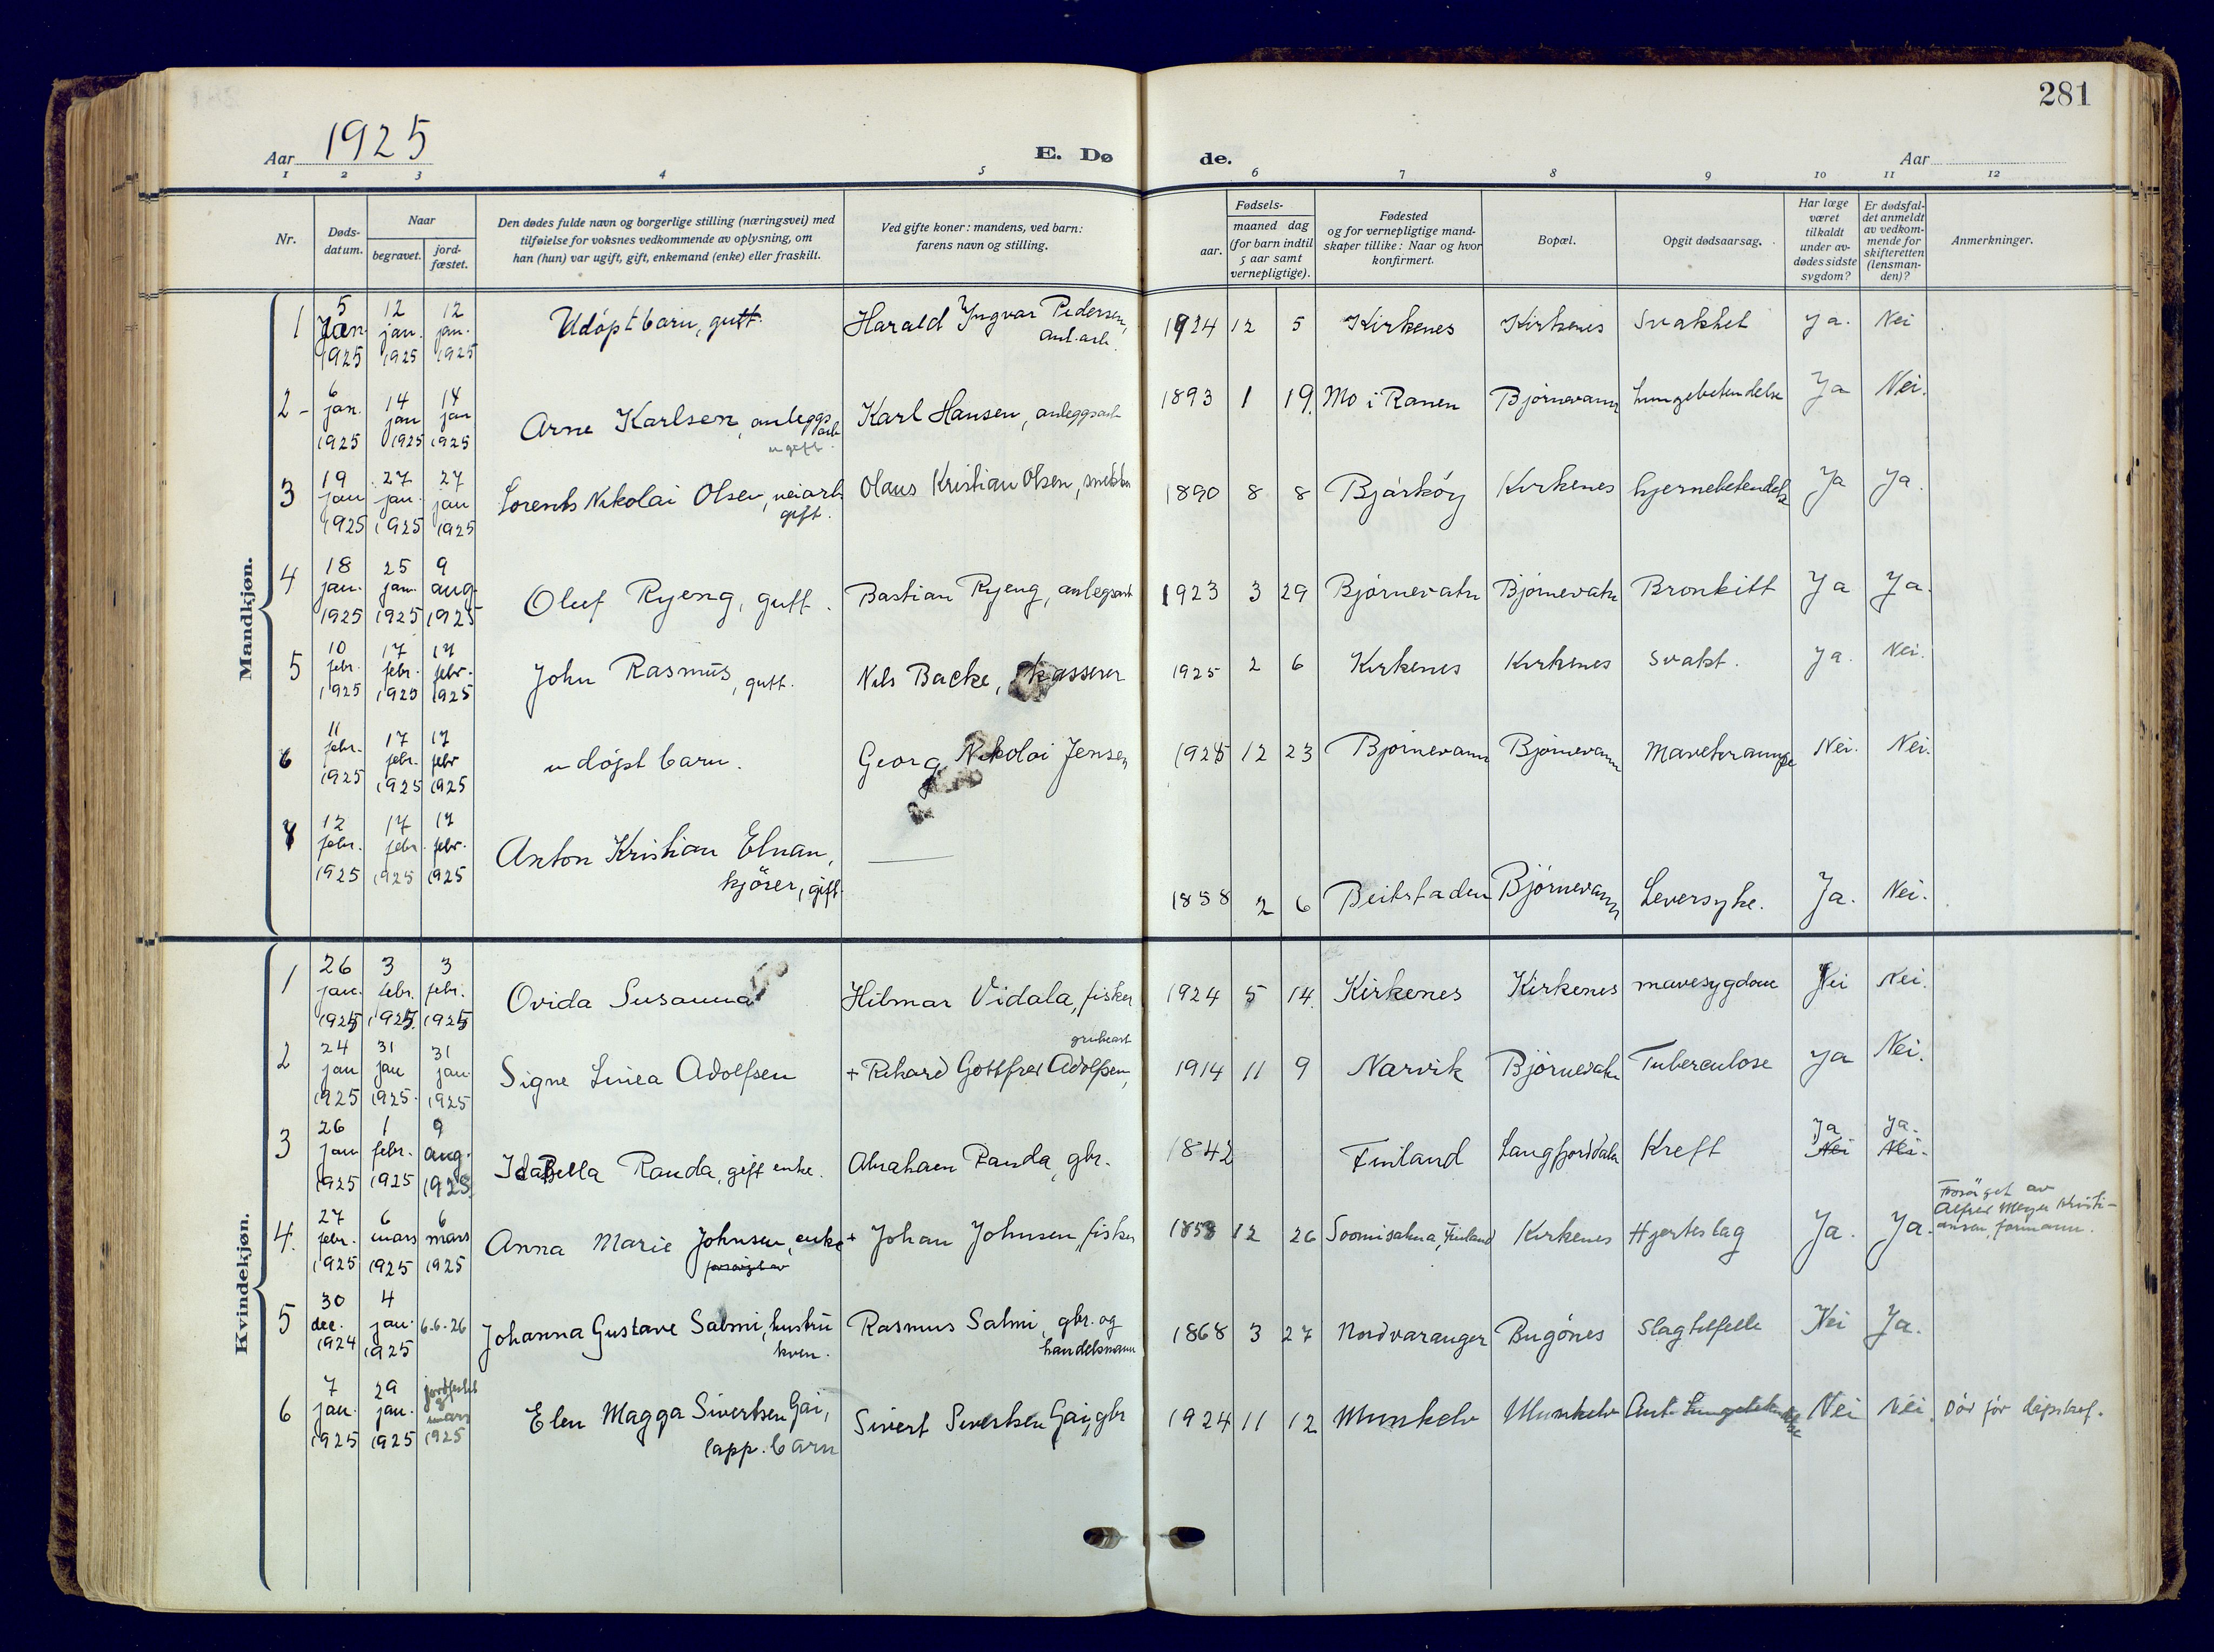 281
Aar 1925
E. Dø de.
Aar
1 2 3 4 5 6 7 8 9 10 11 12
Nr.
Døds-
datum.
Naar
begravet.
jord-
fæstet.
Den dødes fulde navn og borgerlige stilling (næringsvei) med
tilføielse for voksnes vedkommende av oplysning, om
han (hun) var ugift, gift, enkemand (enke) eller fraskilt.
Ved gifte koner: mandens, ved barn:
farens navn og stilling.
Fødsels-
aar.
maaned dag
(for barn indtil
5 aar samt
vernepligtige).
Fødested
og for vernepligtige mand-
skaper tillike: Naar og hvor
konfirmert.
Bopæl.
Opgit dødsaarsag.
Har læge
været
tilkaldt
under av-
dødes sidste
sygdom?
Er dødsfal-
det anmeldt
av vedkom-
mende for
skifteretten
(lensman-
den)?
Anmerkninger.
Mandkjøn.
1 5 jan. 1925 12 jan. 1925 12 jan. 1925 Udøpt barn, gutt. Harald Yngvar Pedersen, anl.arb. 1924 12 5 Kirkenes Kirkenes Svakhet Ja. Nei
2 6 jan. 1925 14 jan 1925 14 jan 1925 Arne Karlsen, anleggsarb. ugift. Karl Hansen, anleggsarb 1893 1 19. Mo i Ranen Bjørnevann Lungebetendelse Ja Nei.
3 19 jan 1925 27 jan. 1925 27 jan 1925 Lorents Nikolai Olsen, veiarb. gift. Olaus Kristian Olsen, snekker 1890 8 8 Bjarkøy Kirkenes hjernebetendelse Ja Ja.
4 18 jan. 1925 25 jan. 1925 9 aug. 1925 Oluf Ryeng, gutt. Bastian Ryeng, anlegsarb 1923 3 29 Bjørnevatn Bjørnevatn Bronkitt Ja Ja.
5 10 febr. 1925 17 febr. 1925 17 febr. 1925 John Rasmus, gutt. Nils Backe, kasserer 1925 2 6 Kirkenes Kirkenes svakt. Ja. Nei.
6 11 febr. 1925 17 febr. 1925 17 febr 1925 udøpt barn. Georg Nikolai Jensen 1925 12 23 Bjørnevann Bjørnevann Mavekrampe Nei. Nei.
7 12 febr. 1925 17 febr 1925 17 febr. 1925 Anton Kristian Elnan, kjører, gift. — 1858 2 6 Beitstaden Bjørnevann Leversyke. Ja. Nei.
Kvindekjøn.
1 26 jan. 1925 3 febr. 1925. 3 febr. 1925 Ovida Susanna Hilmar Vidala, fisker 1924 5 14. Kirkenes Kirkenes mavesygdom Nei Nei.
2 24 jan 1925 31 jan 1925. 31 jan. 1925 Signe Linea Adolfsen + Rihard Gottfred Adolfsen, grubearb 1914 11 9 Narvik Bjørnevatn Tuberculose Ja Nei.
3 26 jan 1925 1 febr. 1925 9 aug. 1925. Isabella Randa, gift enke. Abraham Randa, gbr. 1842 Finland Langfjorddaln Kreft Ja Nei Ja. Nei.
4. 27 febr. 1925 6 mars 1925 6 mars 1925 Anna Marie Johnsen, enke forsørget av + Johan Johnsen, fisker 1858 12 26 Soomisalma, Finland Kirkenes Hjerteslag Ja. Ja. Forsørget av
Alfred Meyer Kristi-
ansen, formann.
5 30 dec. 1924 4 jan. 1925 6-6-26 Johanna Gustave Salmi, hustru kven. Rasmus Salmi, gbr. og handelsmann 1868 3 27 Nordvaranger Bugønes Slagtilfelle Nei Ja.
6 7 jan. 1925 29 jan. 1925 jordfestet mars 1925 Elen Magga Sivertsen Gai, lapp. barn Sivert Sivertsen Gai, gbr 1924 11 12 Munkelv Munkelv Ant. Lungebetendelse Nei Nei. Dør før dåpsbef.